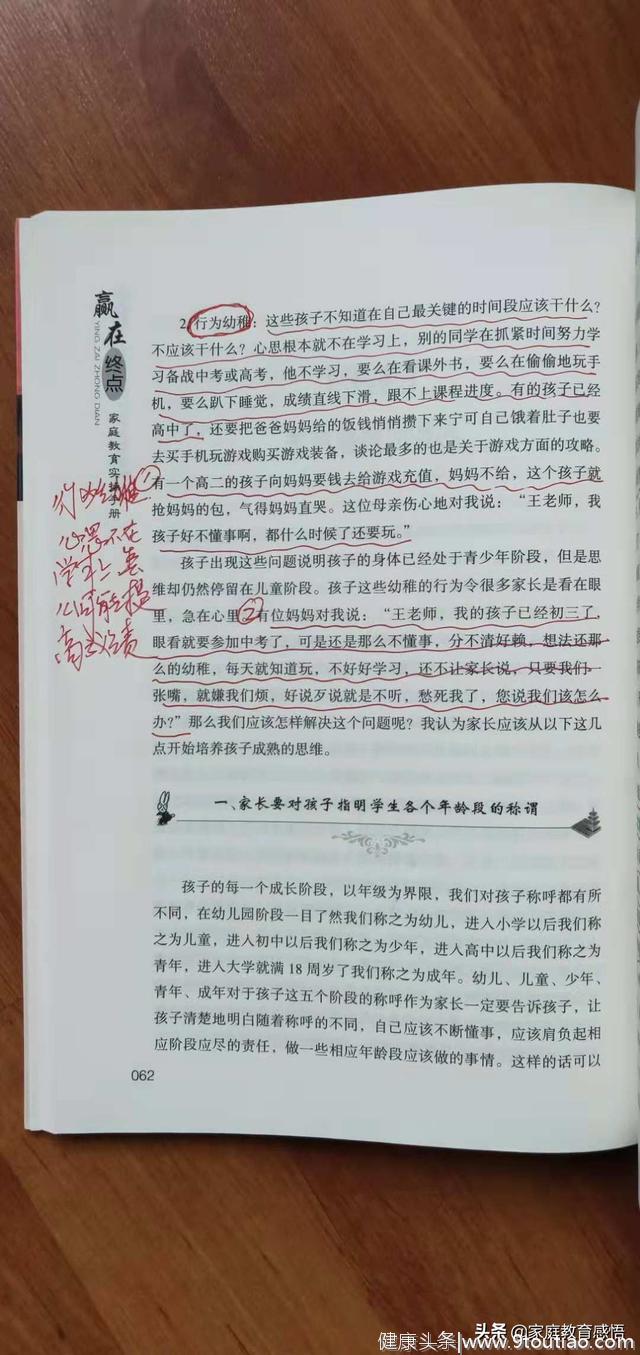 赢在终点
YING ZAI ZHONG DIAN
家庭教育实操手册
2.行为幼稚：这些孩子不知道在自己最关键的时间段应该干什么？
不应该干什么？心思根本就不在学习上，别的同学在抓紧时间努力学
习备战中考或高考，他不学习，要么在看课外书，要么在偷偷地玩手
机，要么趴下睡觉，成绩直线下滑，跟不上课程进度。有的孩子已经
高中了，还要把爸爸妈妈给的饭钱悄悄攒下来宁可自己饿着肚子也要
去买手机玩游戏购买游戏装备，谈论最多的也是关于游戏方面的攻略。
①
有一个高二的孩子向妈妈要钱去给游戏充值，妈妈不给，这个孩子就
抢妈妈的包，气得妈妈直哭。这位母亲伤心地对我说：“王老师，我
孩子好不懂事啊，都什么时候了还要玩。”
孩子出现这些问题说明孩子的身体已经处于青少年阶段，但是思
维却仍然停留在儿童阶段。孩子这些幼稚的行为令很多家长是看在眼
里，急在心里②有位妈妈对我说：“王老师，我的孩子已经初三了，
眼看就要参加中考了，可是还是那么不懂事，分不清好赖，想法还那
么的幼稚，每天就知道玩，不好好学习，还不让家长说，只要我们一
张嘴，就嫌我们烦，好说歹说就是不听，愁死我了，您说我们该怎么
办？”那么我们应该怎样解决这个问题呢？我认为家长应该从以下这几
点开始培养孩子成熟的思维。
一、家长要对孩子指明学生各个年龄段的称谓
孩子的每一个成长阶段，以年级为界限，我们对孩子称呼都有所
不同，在幼儿园阶段一目了然我们称之为幼儿，进入小学以后我们称
之为儿童，进入初中以后我们称之为少年，进入高中以后我们称之为
青年，进入大学就满 18 周岁了我们称之为成年。幼儿、儿童、少年、
青年、成年对于孩子这五个阶段的称呼作为家长一定要告诉孩子，让
孩子清楚地明白随着称呼的不同，自己应该不断懂事，应该肩负起相
应阶段应尽的责任，做一些相应年龄段应该做的事情。这样的话可以
062
头条@家庭教育感悟
健康头条|www.9toutiao.com